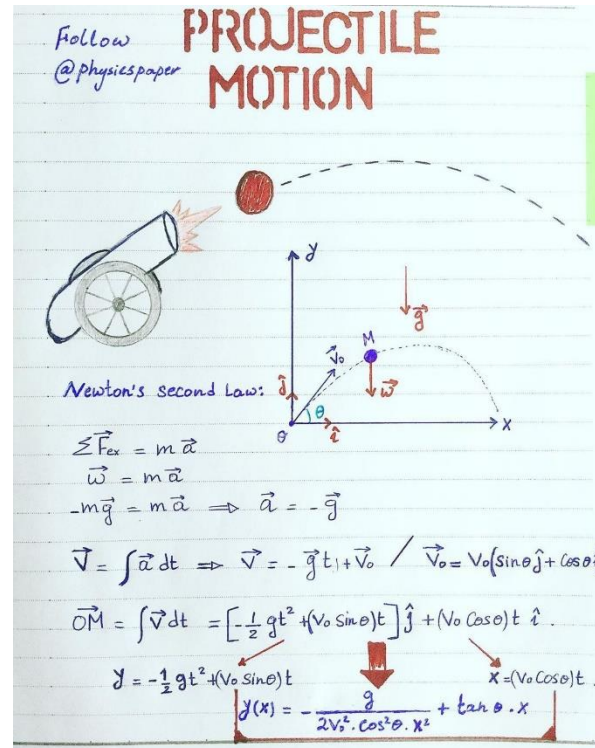 Follow
@physicspaper
PROJECTILE
MOTION
y
g⃗
M
V⃗₀
w⃗
ĵ
θ
O
î
x
Newton's second Law:
ΣF⃗ex = m a⃗
w⃗ = m a⃗
-mg⃗ = m a⃗ ⇒ a⃗ = - g⃗
V⃗ = ∫ a⃗ dt ⇒ V⃗ = - g⃗ t + V⃗₀ / V⃗₀ = V₀(sinθ ĵ + cosθ
OM⃗ = ∫ V⃗ dt = [-½ gt² + (V₀ sinθ)t] ĵ + (V₀ cosθ)t î.
y = -½ gt² + (V₀ sinθ)t
x = (V₀ cosθ)t.
y(x) = - g / 2V₀² · cos²θ · x² + tanθ · x